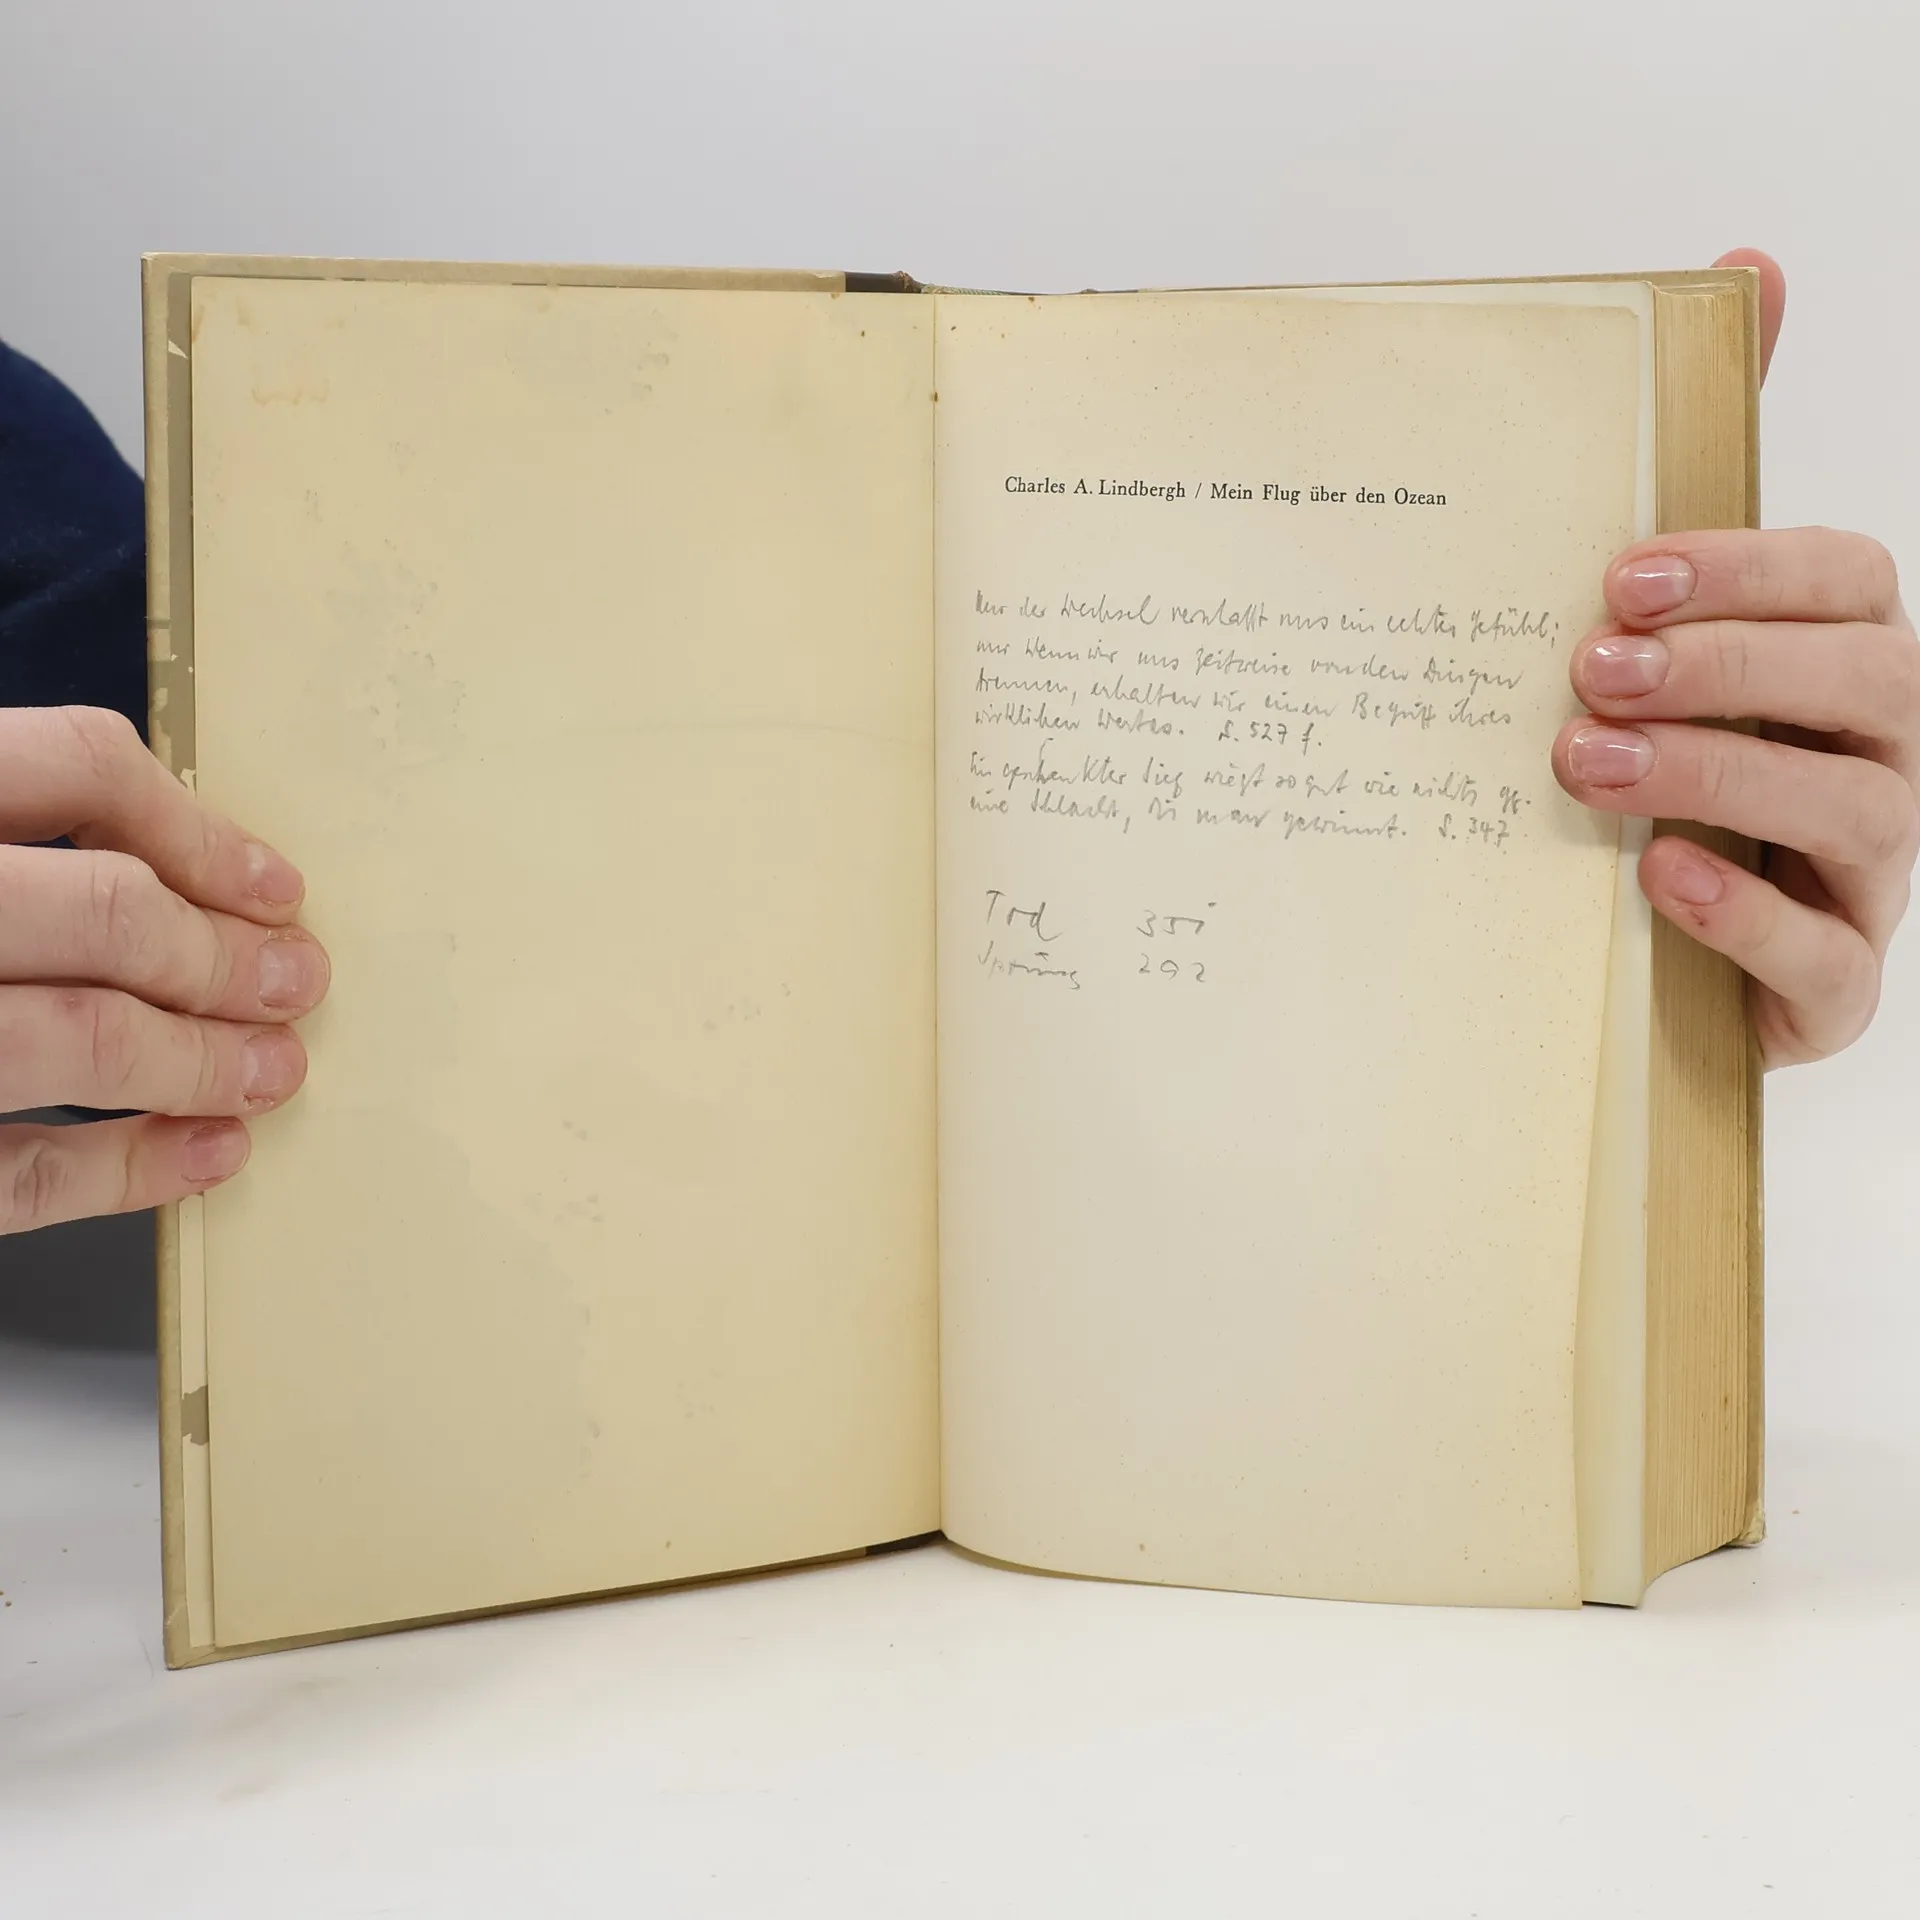 Charles A. Lindbergh / Mein Flug über den Ozean
Nur der Wechsel verschafft uns ein echtes Gefühl;
nur wenn wir uns zeitweise von den Dingen
trennen, erhalten wir einen Begriff ihres
wirklichen Wertes. S. 527 f.
Ein geschenkter Sieg wiegt so gut wie nichts gg.
eine Schlacht, die man gewinnt. S. 347
Tod
Sprung 292